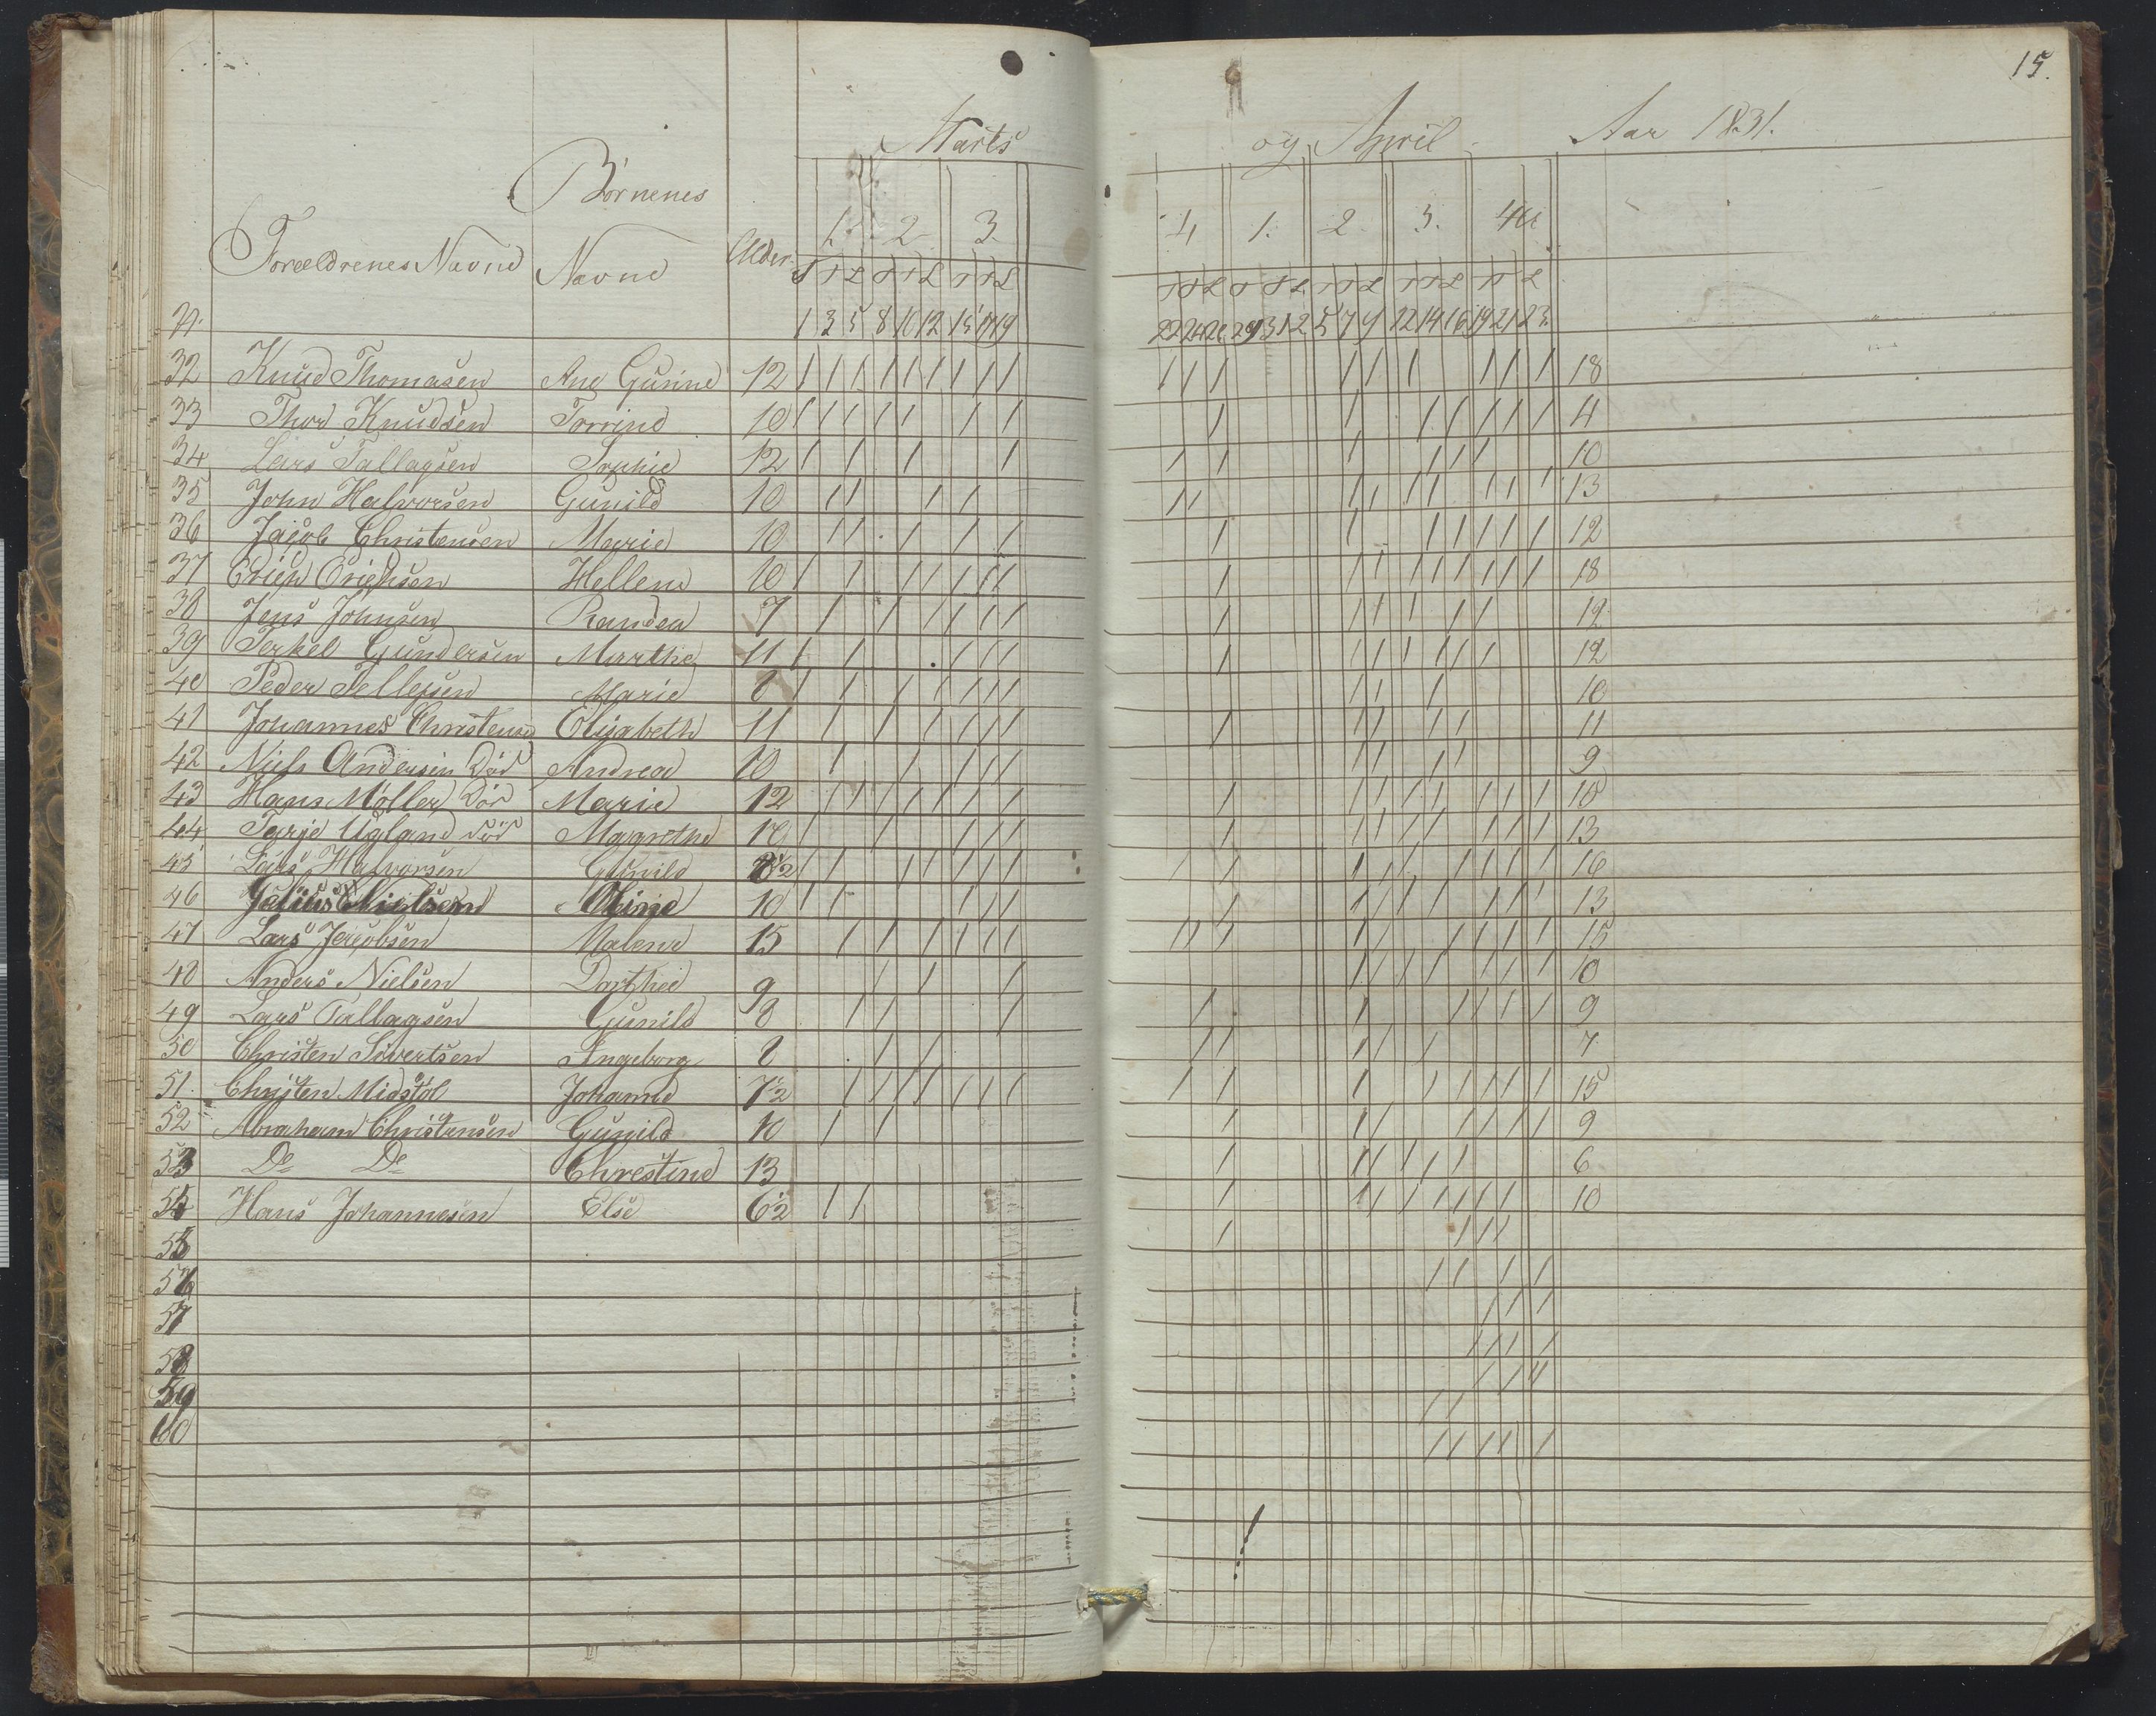 15.
Marts og April Aar 1831.
Börnenes
1. 2. 3. 4. 1. 2. 3. 4de
Forældrenes Navne Navne Alder
T T L T T L T T L T T L T T L T T L T T L T L
N. 1 3 5 8 10 12 15 17 19 22 24 26 29 31 2 5 7 9 12 14 16 19 21 23
32 Knud Thomasen Ane Gurine 12 18
33 Thor Knudsen Torrine 10 4
34 Lars Tallagsen Sophie 12 10
35 John Halvorsen Gunild 10 13
36 Jacob Christensen Marie 10 12
37 Erich Erichsen Hellene 10 18
38 Jens Johnsen Randea 7 12
39 Terkel Gundersen Marthe 11 12
40 Peder Tellefsen Marie 8 10
41 Johannes Christensen Elisabeth 11 11
42 Niels Andersen Död Andrea 10 9
43 Hans Möller Död Marie 12 18
44 Terje Ugland död Magrethe 10 13
45 Lars Halvorsen Gunild 16
46 Nielsen Oline 10 13
47 Lars Jacobsen Malene 15 15
48 Anders Nielsen Dorthee 9 10
49 Lars Tallagsen Gunild 8 9
50 Christen Sivertsen Ingeborg 8 7
51. Christen Midstöl Johanne 7½ 15
52 Abraham Christensen Gunild 10 9
53 Do Do Chrestine 13 6
54 Hans Johannesen Else 6½ 10
55
56
57
58
59
60